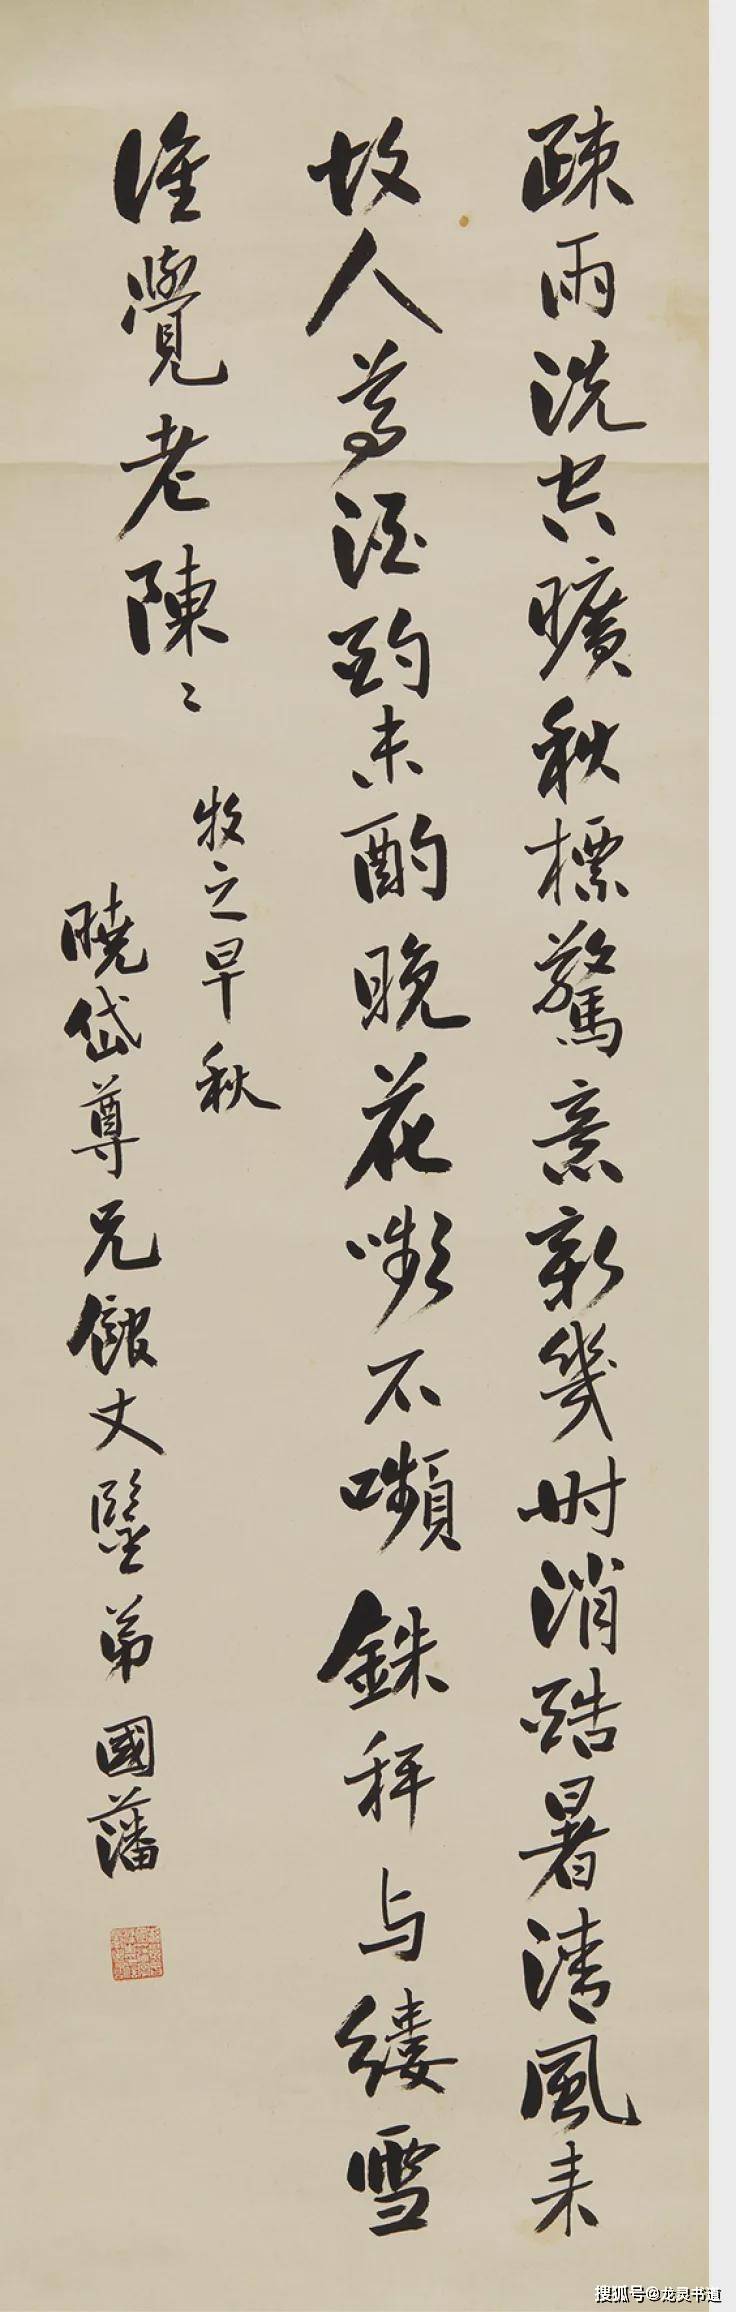 疎雨洗空曠秋標驚意新幾时消酷暑清風来
故人尊酒酌未酌晚花嚬不嚬銖秤与縷雪
誰覺老陳〻
牧之早秋
曉岱尊兄館丈鑒弟國藩
搜狐号@龙灵书道